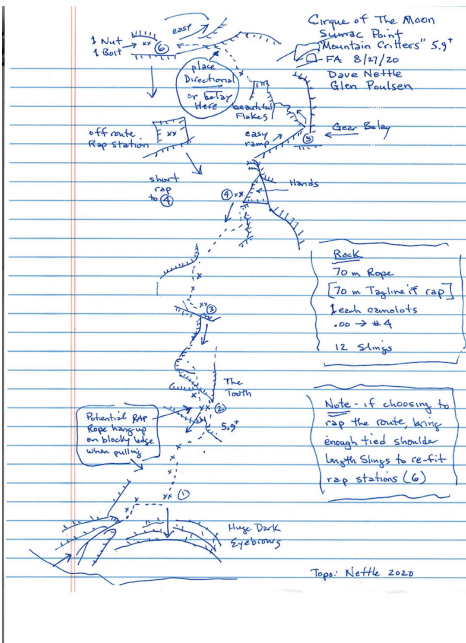 Cirque of The Moon
Sumac Point
"Mountain Critters" 5.9+
FA 8/27/20
Dave Nettle
Glen Poulsen
easy
1 Nut
1 Bolt
xx
6
place
Directional
or belay
Here
beautiful
Flakes
off route
Rap station
xx
easy
ramp
5
Gear Belay
short
rap
to 4
4 xx
Hands
Rack
70 m Rope
[70 m Tagline if rap]
1 each camalots
.00 → #4
12 Slings
xx 3
The
Tooth
xx 2
5.9+
Potential RAP
Rope hangup
on blocky ledge
when pulling
Note - if choosing to
rap the route, bring
enough tied shoulder
length Slings to re-fit
rap stations (6)
xx 1
xx
Huge Dark
Eyebrows
Topo: Nettle 2020